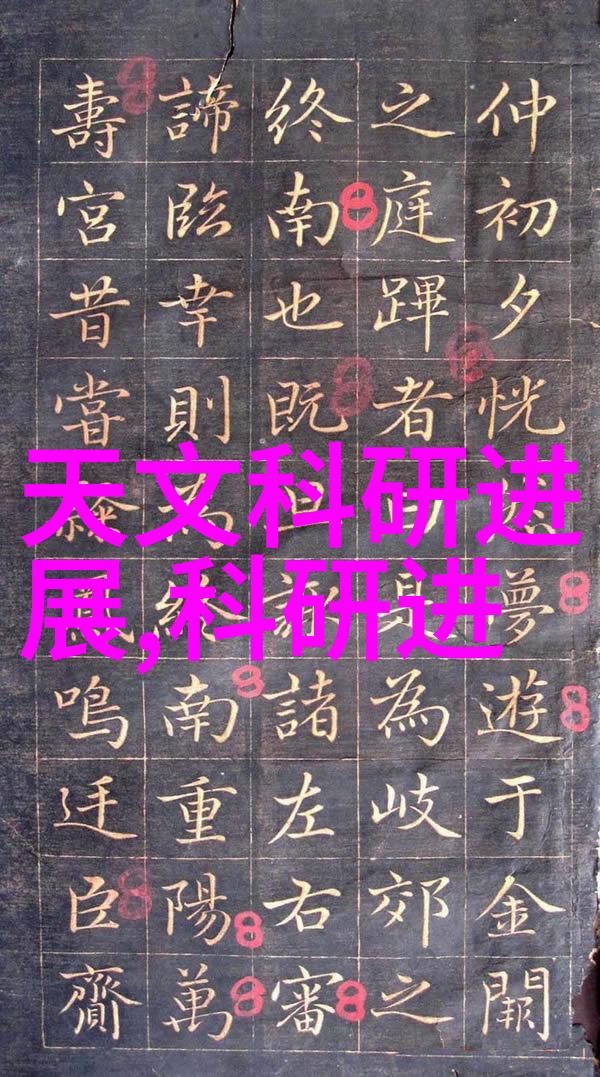 仲初夕恍然夢遊于金闕
之庭蹕者曰為岐郊之
終南也既旦諸左右審
諦臨幸則為終南重陽萬
壽宮昔嘗鳴迂臣齎
天文科研进
展,科研进